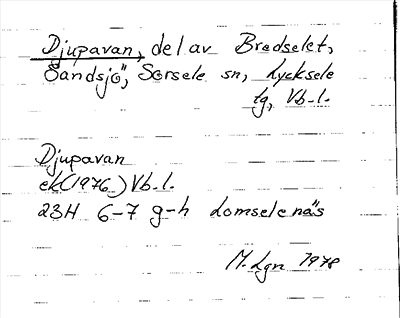 Djupavan, del av Bredselet,
Sandsjö, Sorsele sn, Lycksele
tg, Vb.l.
Djupavan
ek (1976) Vb.l.
23H 6-7 g-h Lomselenäs
M. Lgn 1978